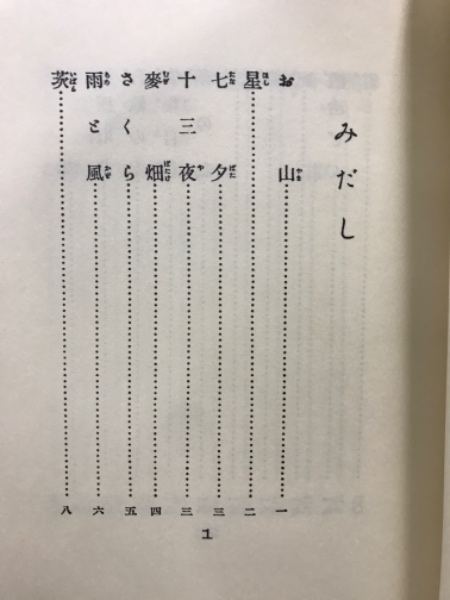 みだし
お山……………一
星……………二
七夕……………三
十三夜……………三
麥畑……………四
さくら……………五
雨と風……………六
茨……………八
1